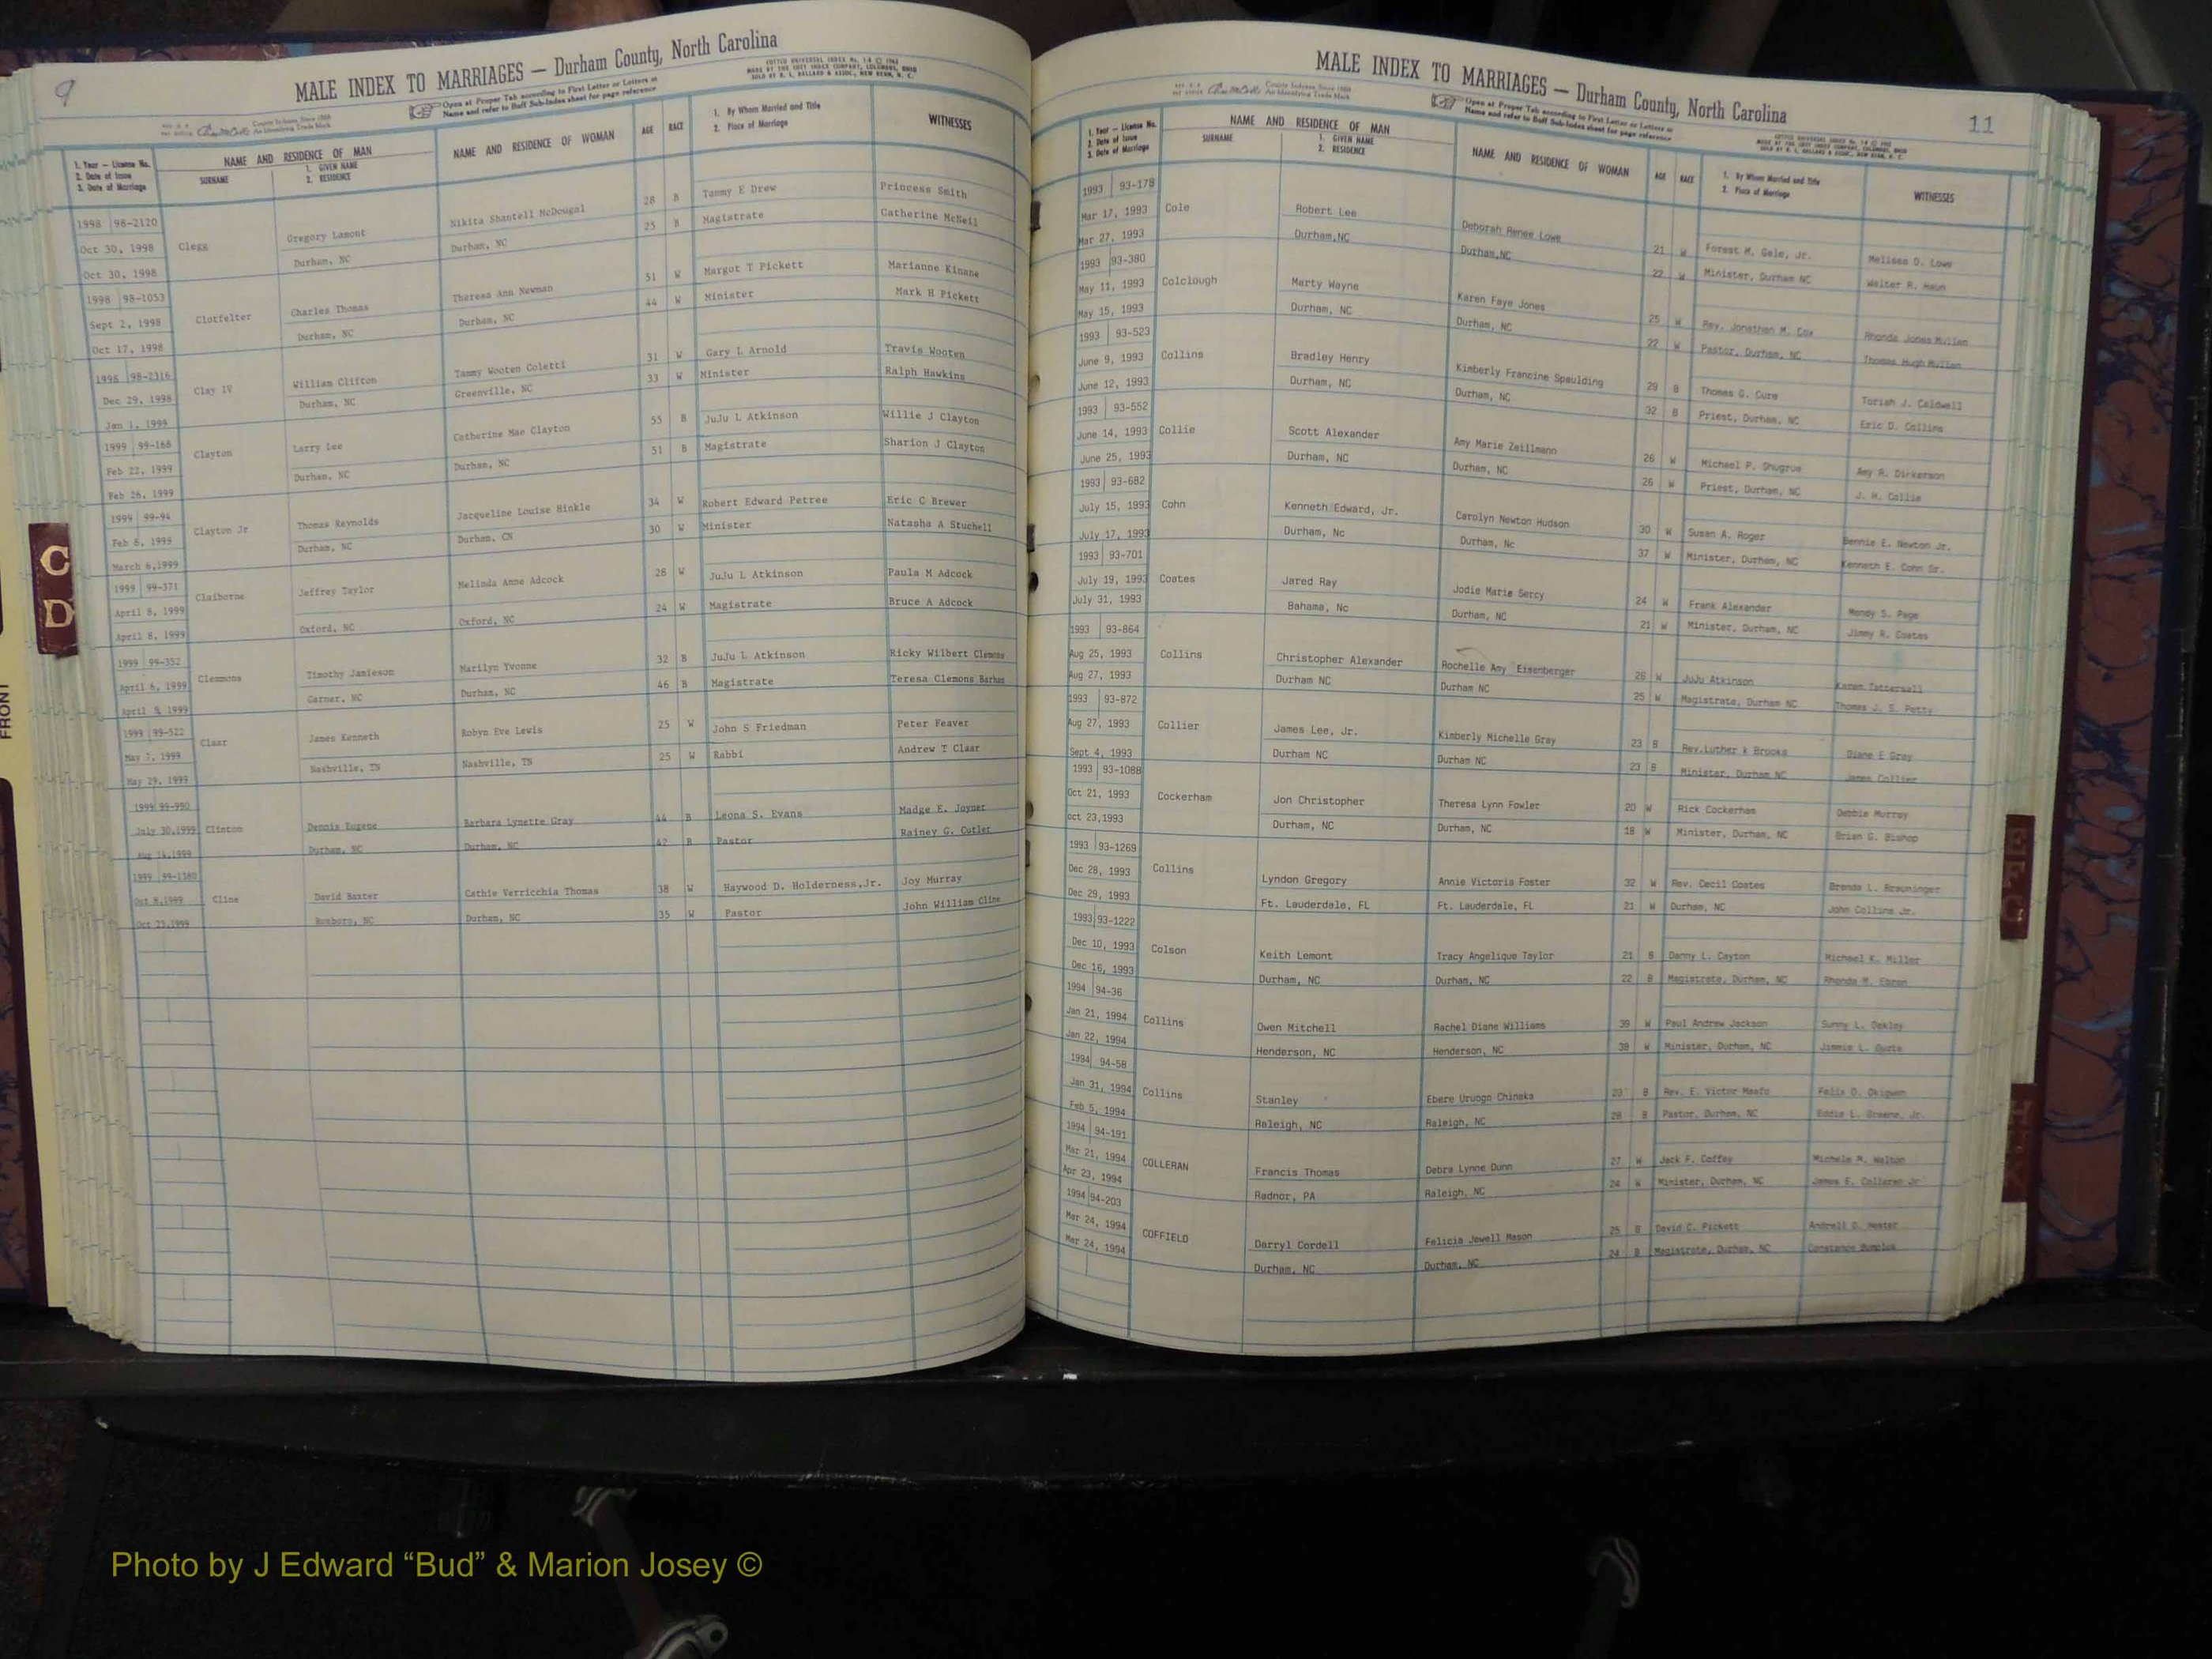 9
MALE INDEX TO MARRIAGES — Durham County, North Carolina
Open at Proper Tab according to First Letter or Letters in
Name and refer to Buff Sub-Index sheet for page reference
COTTED UNIVERSAL INDEX No. 1-8 © 1962
MADE BY THE COTT INDEX COMPANY, COLUMBUS, OHIO
SOLD BY R. L. BALLARD & ASSOC., NEW BERN, N. C.
County Indexes Since 1888
An Identifying Trade Mark
1. Year — License No.
2. Date of Issue
3. Date of Marriage
NAME AND RESIDENCE OF MAN
SURNAME
1. GIVEN NAME
2. RESIDENCE
NAME AND RESIDENCE OF WOMAN
AGE
RACE
1. By Whom Married and Title
2. Place of Marriage
WITNESSES
1998 98-2120 Nikita Shantell McDougal 28 B Tammy E Drew Princess Smith
Oct 30, 1998 Clegg Gregory Lamont Durham, NC 25 B Magistrate Catherine McNeil
Oct 30, 1998 Durham, NC
1998 98-1053 Theresa Ann Newman 51 W Margot T Pickett Marianne Kinane
Sept 2, 1998 Clotfelter Charles Thomas Durham, NC 44 W Minister Mark H Pickett
Oct 17, 1998 Durham, NC
1998 98-2316 Tammy Wooten Coletti 31 W Gary L Arnold Travis Wooten
Dec 29, 1998 Clay IV William Clifton Greenville, NC 33 W Minister Ralph Hawkins
Jan 1, 1999 Durham, NC
1999 99-168 Catherine Mae Clayton 55 B JuJu L Atkinson Willie J Clayton
Feb 22, 1999 Clayton Larry Lee Durham, NC 51 B Magistrate Sharion J Clayton
Feb 26, 1999 Durham, NC
1999 99-94 Jacqueline Louise Hinkle 34 W Robert Edward Petree Eric C Brewer
Feb 8, 1999 Clayton Jr Thomas Reynolds Durham, CN 30 W Minister Natasha A Stuchell
March 6,1999 Durham, NC
1999 99-371 Melinda Anne Adcock 28 W JuJu L Atkinson Paula M Adcock
April 8, 1999 Claiborne Jeffrey Taylor Oxford, NC 24 W Magistrate Bruce A Adcock
April 8, 1999 Oxford, NC
1999 99-352 Marilyn Yvonne 32 B JuJu L Atkinson Ricky Wilbert Clemons
April 6, 1999 Clemmons Timothy Jamieson Durham, NC 46 B Magistrate Teresa Clemons Barham
April 1999 Garner, NC
1999 99-522 Robyn Eve Lewis 25 W John S Friedman Peter Feaver
May 7, 1999 Claar James Kenneth Nashville, TN 25 W Rabbi Andrew T Claar
May 29, 1999 Nashville, TN
1999 99-990 Barbara Lynette Gray 44 B Leona S. Evans Madge E. Joyner
July 30,1999 Clinton Dennis Eugene Durham, NC 42 B Pastor Rainey G. Cutler
Aug 14,1999 Durham, NC
1999 99-1380 Cathie Verricchia Thomas 38 W Haywood D. Holderness,Jr. Joy Murray
Oct 8,1999 Cline David Baxter Durham, NC 35 W Pastor John William Cline
Oct 23,1999 Roxboro, NC
C
D
FRONT
MALE INDEX TO MARRIAGES — Durham County, North Carolina
11
County Indexes Since 1888
An Identifying Trade Mark
Open at Proper Tab according to First Letter or Letters in
Name and refer to Buff Sub-Index sheet for page reference
COTTED UNIVERSAL INDEX No. 1-8 © 1962
MADE BY THE COTT INDEX COMPANY, COLUMBUS, OHIO
SOLD BY R. L. BALLARD & ASSOC., NEW BERN, N. C.
1. Year — License No.
2. Date of Issue
3. Date of Marriage
NAME AND RESIDENCE OF MAN
SURNAME
1. GIVEN NAME
2. RESIDENCE
NAME AND RESIDENCE OF WOMAN
AGE
RACE
1. By Whom Married and Title
2. Place of Marriage
WITNESSES
1993 93-178
Mar 17, 1993 Cole Robert Lee Deborah Renee Lowe 21 W Forest M. Gale, Jr. Melissa D. Lowe
Mar 27, 1993 Durham,NC Durham,NC 22 W Minister, Durham NC Walter R. Haun
1993 93-380
May 11, 1993 Colclough Marty Wayne Karen Faye Jones 25 W Rev. Jonathan M. Cox Rhonda Jones Mullen
May 15, 1993 Durham, NC Durham, NC 22 W Pastor, Durham, NC Thomas Hugh Mullen
1993 93-523
June 9, 1993 Collins Bradley Henry Kimberly Francine Spaulding 29 B Thomas G. Cure Toriah J. Caldwell
June 12, 1993 Durham, NC Durham, NC 32 B Priest, Durham, NC Eric D. Collins
1993 93-552
June 14, 1993 Collie Scott Alexander Amy Marie Zeillmann 26 W Michael P. Shugrue Amy R. Dickerson
June 25, 1993 Durham, NC Durham, NC 26 W Priest, Durham, NC J. H. Collie
1993 93-682
July 15, 1993 Cohn Kenneth Edward, Jr. Carolyn Newton Hudson 30 W Susan A. Roger Bennie E. Newton Jr.
July 17, 1993 Durham, Nc Durham, Nc 37 W Minister, Durham, NC Kenneth E. Cohn Sr.
1993 93-701
July 19, 1993 Coates Jared Ray Jodie Marie Sercy 24 W Frank Alexander Mendy S. Page
July 31, 1993 Bahama, Nc Durham, NC 21 W Minister, Durham, NC Jimmy R. Coates
1993 93-864
Aug 25, 1993 Collins Christopher Alexander Rochelle Amy Eisenberger 26 W JuJu Atkinson Karen Tattersall
Aug 27, 1993 Durham NC Durham NC 25 W Magistrate, Durham NC Thomas J. S. Petty
1993 93-872
Aug 27, 1993 Collier James Lee, Jr. Kimberly Michelle Gray 23 B Rev.Luther k Brooks Diane E Gray
Sept 4, 1993 Durham NC Durham NC 23 B Minister, Durham NC James Collier
1993 93-1088
Oct 21, 1993 Cockerham Jon Christopher Theresa Lynn Fowler 20 W Rick Cockerham Debbie Murray
oct 23,1993 Durham, NC Durham, NC 18 W Minister, Durham, NC Brian G. Bishop
1993 93-1269
Dec 28, 1993 Collins Lyndon Gregory Annie Victoria Foster 32 W Rev. Cecil Coates Brenda L. Breuninger
Dec 29, 1993 Ft. Lauderdale, FL Ft. Lauderdale, FL 21 W Durham, NC John Collins Jr.
1993 93-1222
Dec 10, 1993 Colson Keith Lemont Tracy Angelique Taylor 21 B Danny L. Cayton Michael K. Miller
Dec 16, 1993 Durham, NC Durham, NC 22 B Magistrate, Durham, NC Rhonda M.
1994 94-36
Jan 21, 1994 Collins Owen Mitchell Rachel Diane Williams 39 W Paul Andrew Jackson Sunny L. Oakley
Jan 22, 1994 Henderson, NC Henderson, NC 38 W Minister, Durham, NC Jimmie L.
1994 94-58
Jan 31, 1994 Collins Stanley Ebere Uruogo Chinaka B Rev. E. Victor Felix D.
Feb 5, 1994 Raleigh, NC Raleigh, NC 28 B Pastor, Durham, NC Eddie L. Greene, Jr.
1994 94-191
Mar 21, 1994 COLLERAN Francis Thomas Debra Lynne Dunn 27 W Jack F. Coffey Michele M. Walton
Apr 23, 1994 Radnor, PA Raleigh, NC 24 W Minister, Durham, NC James E. Colleran Jr
1994 94-203
Mar 24, 1994 COFFIELD Darryl Cordell Felicia Jewell Mason 25 B David C. Pickett Andrell D. Hester
Mar 24, 1994 Durham, NC Durham, NC 24 B Magistrate, Durham, NC Constance
Photo by J Edward “Bud” & Marion Josey ©